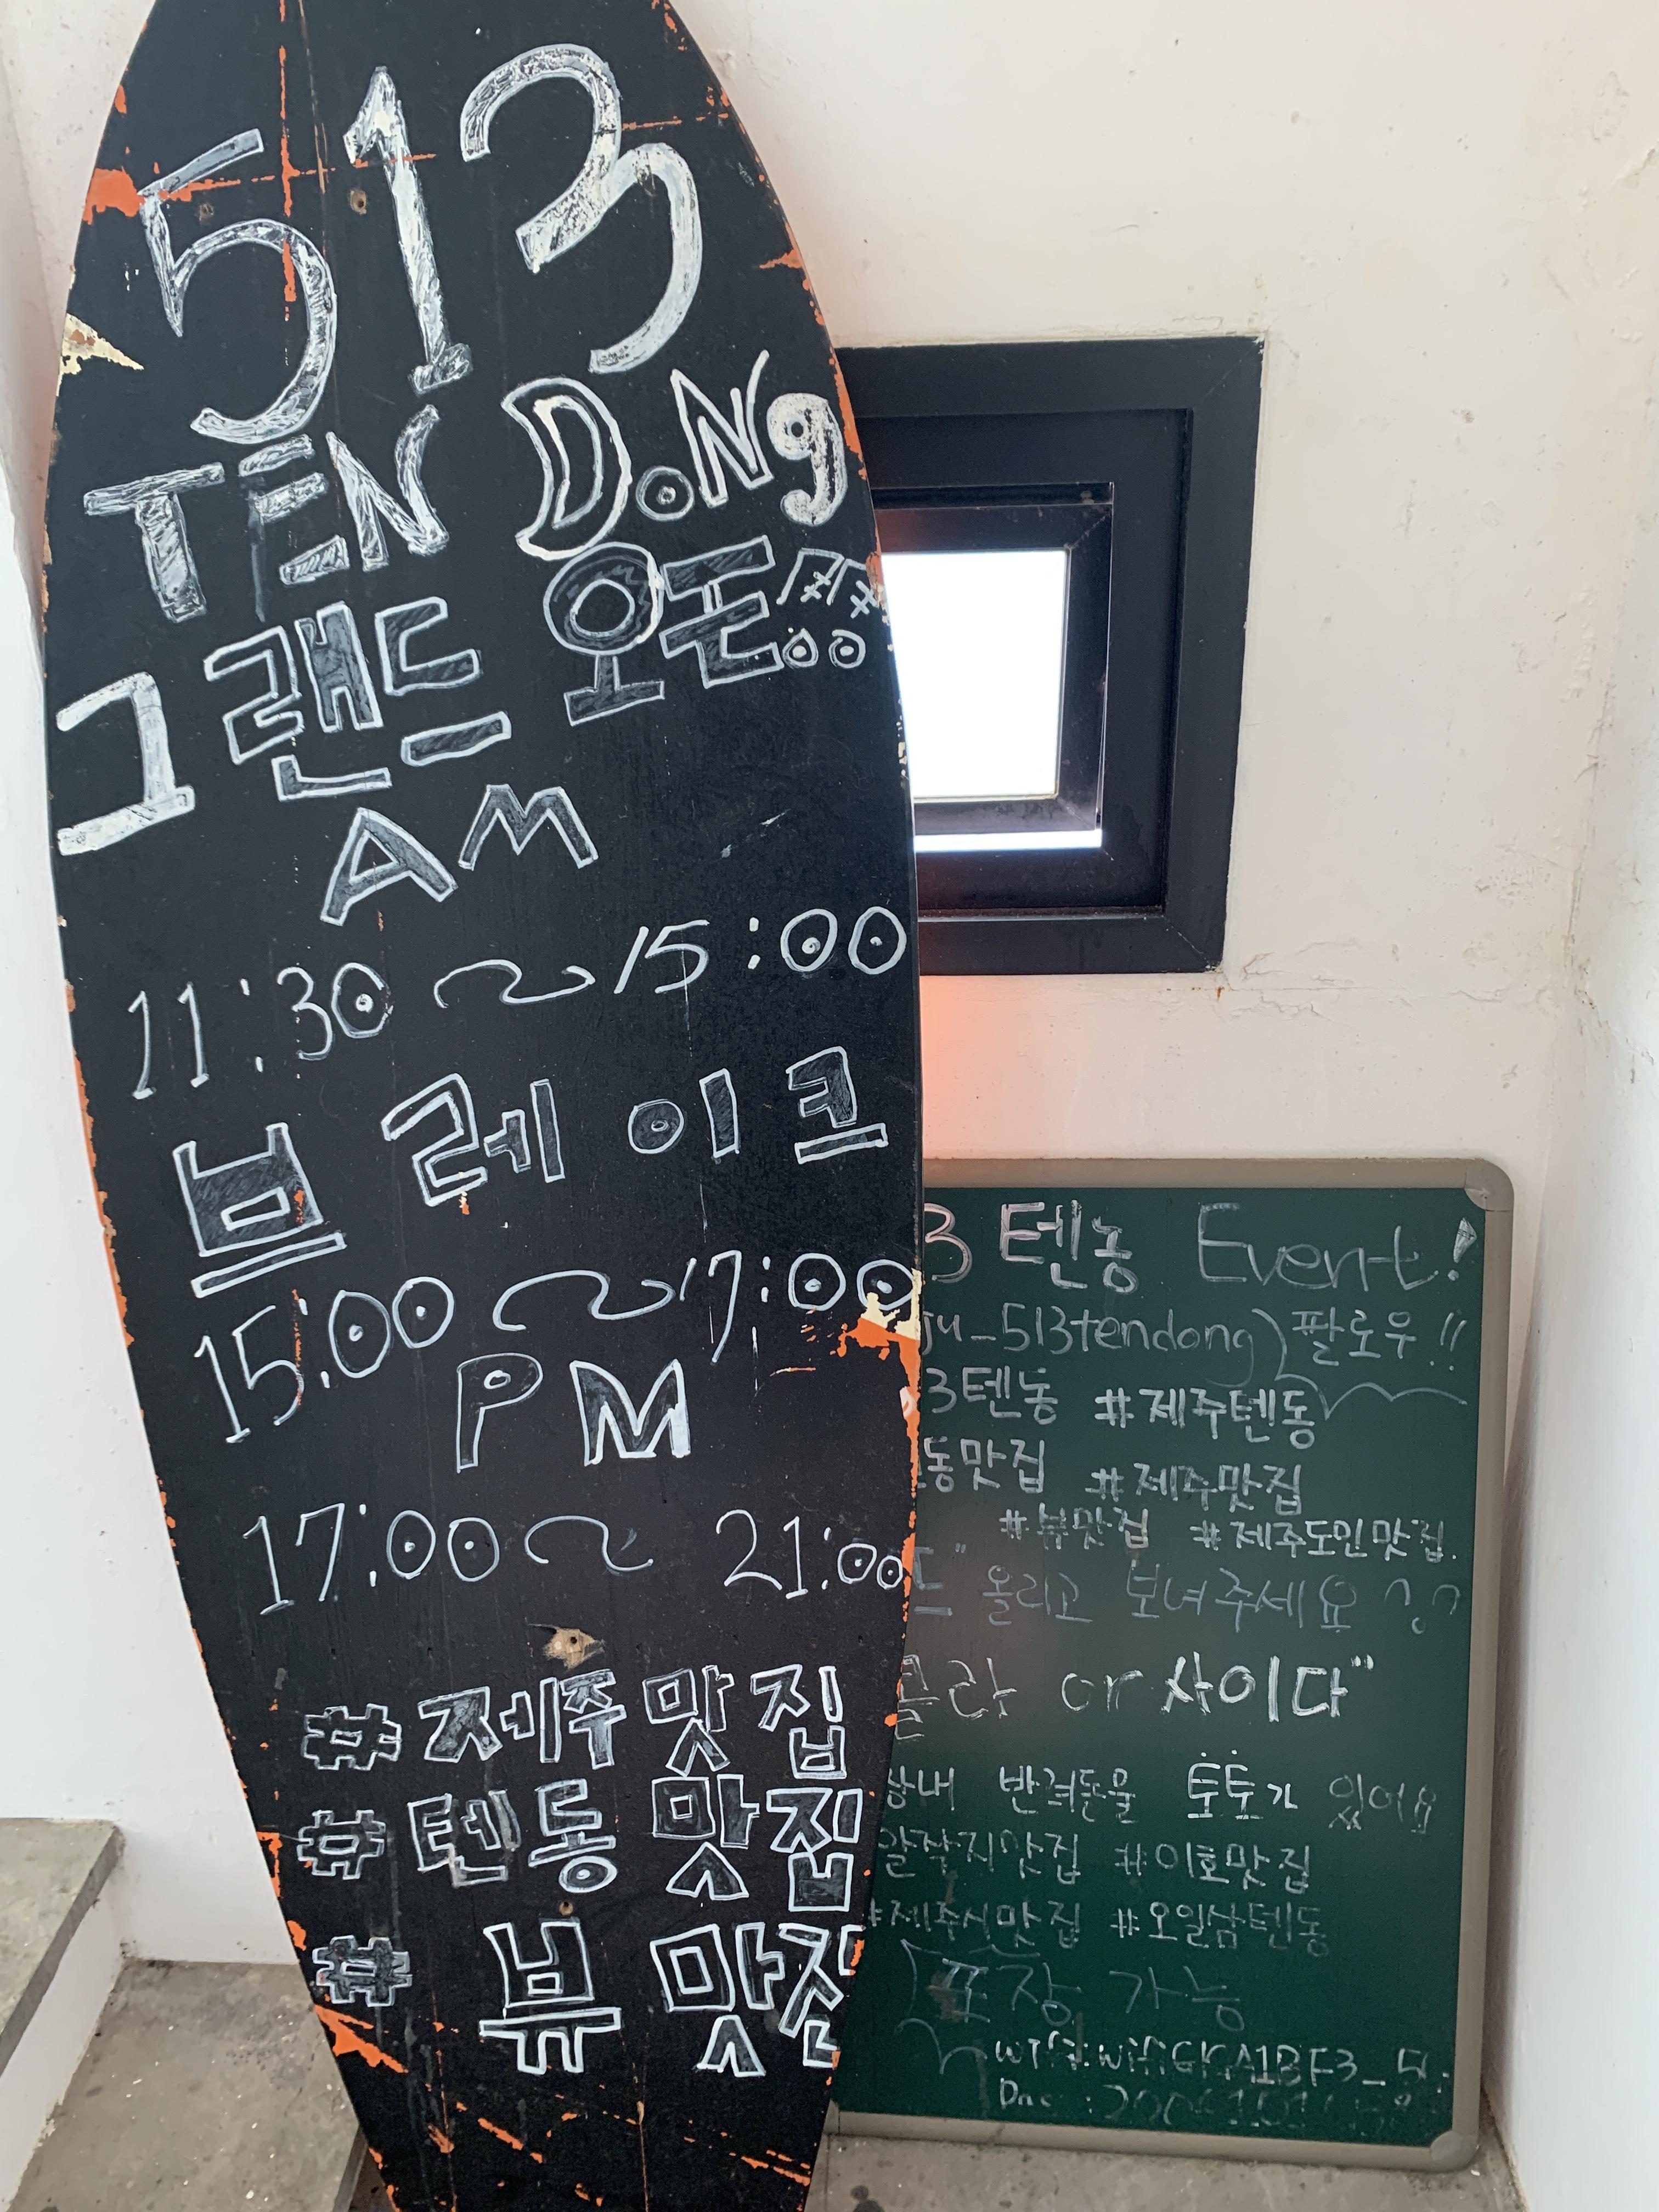 513
TEN DoNg
그랜드 오픈!!
AM
11:30 ~ 15:00
브레이크
15:00 ~ 17:00
PM
17:00 ~ 21:00
#제주맛집
#텐동맛집
#뷰맛집
3 텐동 Event!
ju_513tendong 팔로우!!
3텐동 #제주텐동
동맛집 #제주맛집
#뷰맛집 #제주도민맛집.
드" 올리고 보녀주세요
콜라 or 사이다"
상내 반려동물 토토가 있어요
알작지맛집 #이호맛집
#제주시맛집 #오일삼텐동
포장 가능